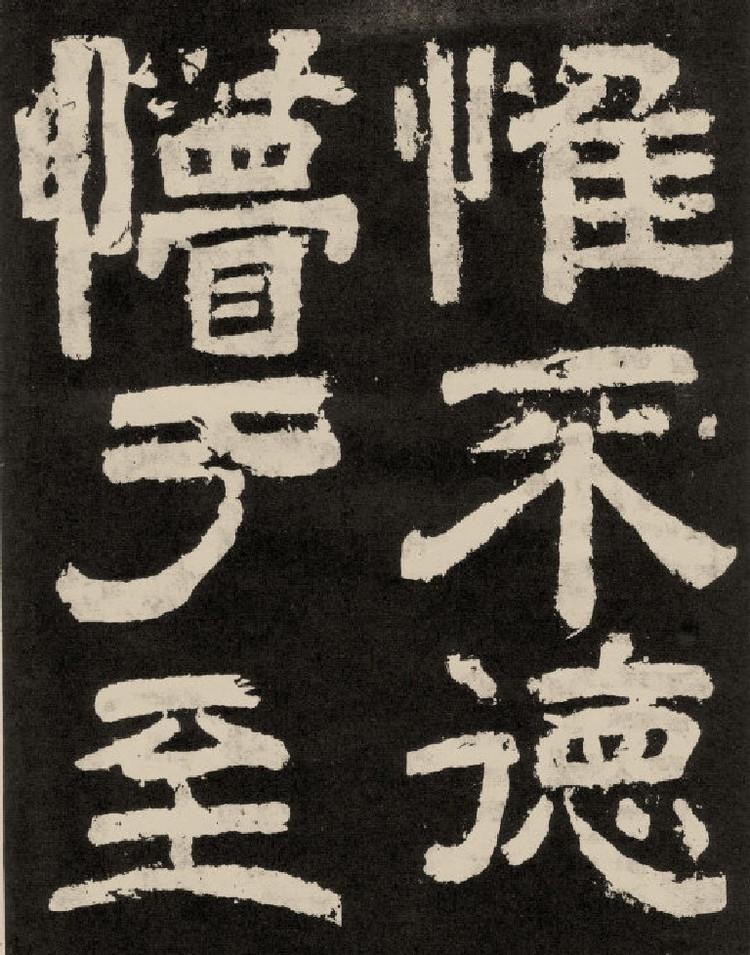 惟不德
懵于至